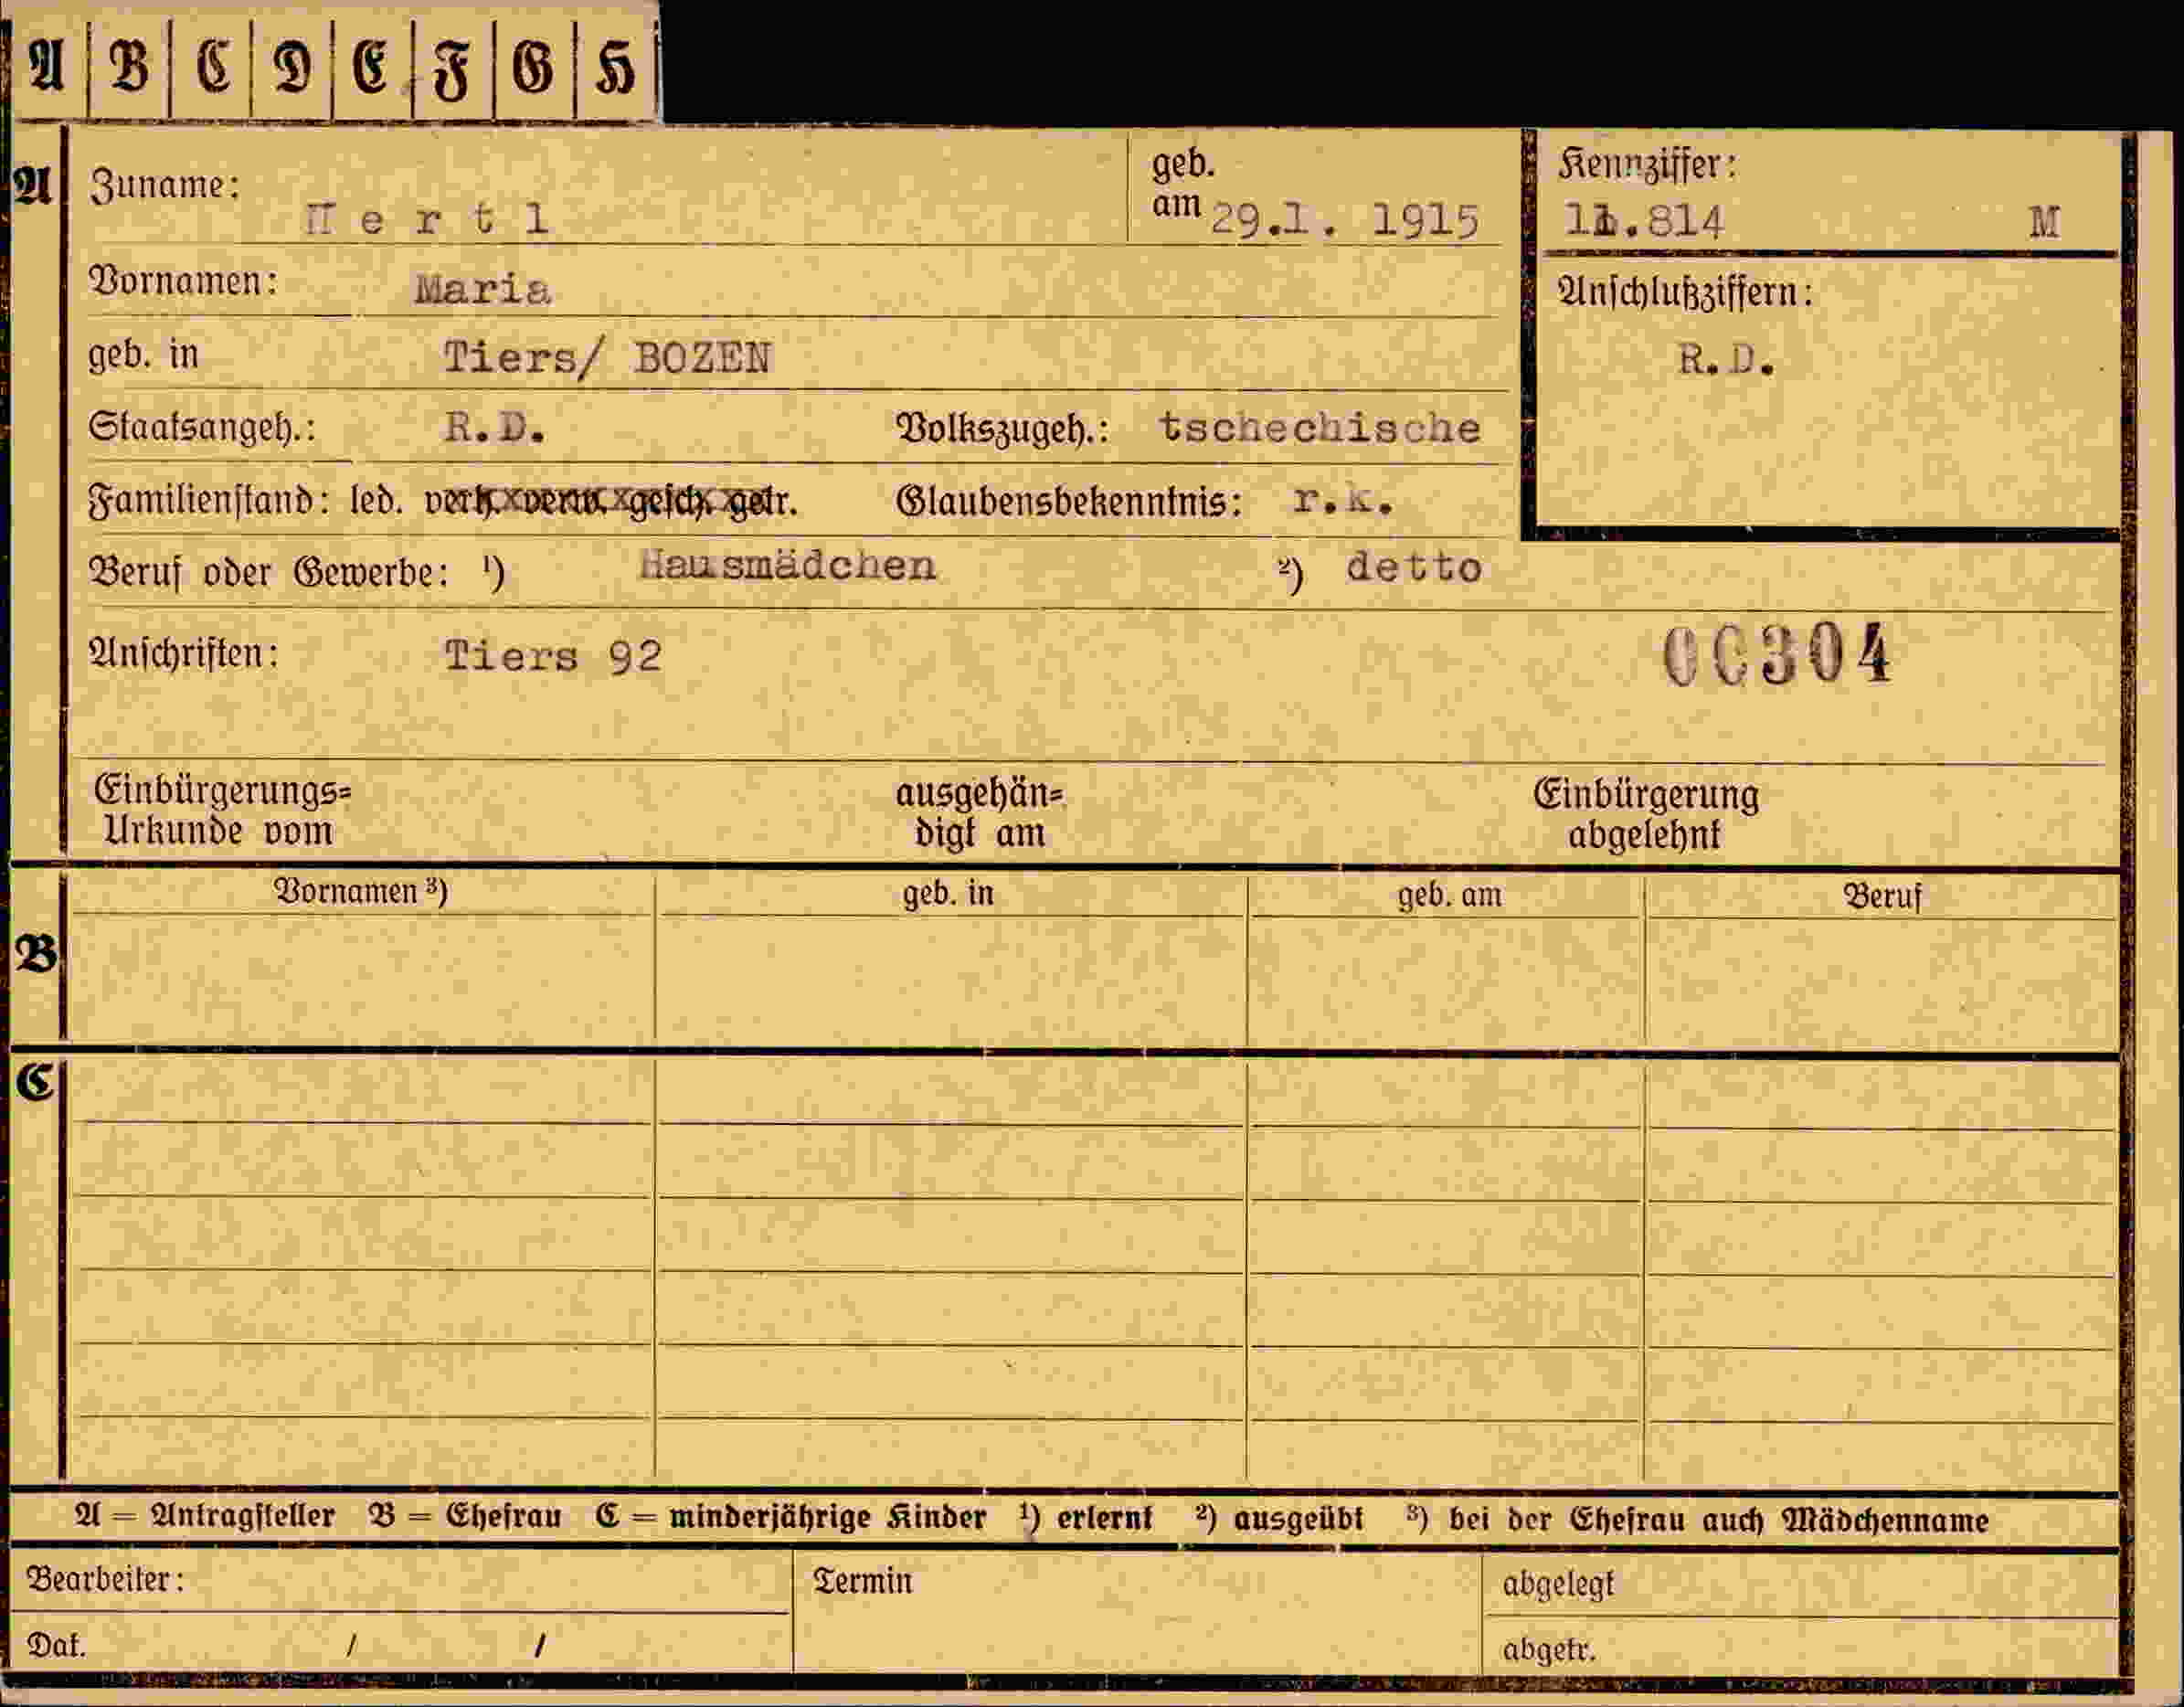 A B C D E F G H
A Zuname: H e r t l geb. am 29.1. 1915 Kennziffer: 11.814 M
Vornamen: Maria Anschlußziffern:
geb. in Tiers/ BOZEN R.D.
Staatsangeh.: R.D. Volkszugeh.: tschechische
Familienstand: led. verh. verw. gesch. getr. Glaubensbekenntnis: r.k.
Beruf oder Gewerbe: ¹) Hausmädchen ²) detto
Anschriften: Tiers 92 00304
Einbürgerungs= ausgehän= Einbürgerung
Urkunde vom digt am abgelehnt
Vornamen ³) geb. in geb. am Beruf
B
C
A = Antragsteller B = Ehefrau C = minderjährige Kinder ¹) erlernt ²) ausgeübt ³) bei der Ehefrau auch Mädchenname
Bearbeiter: Termin abgelegt
Dat. / / abgetr.